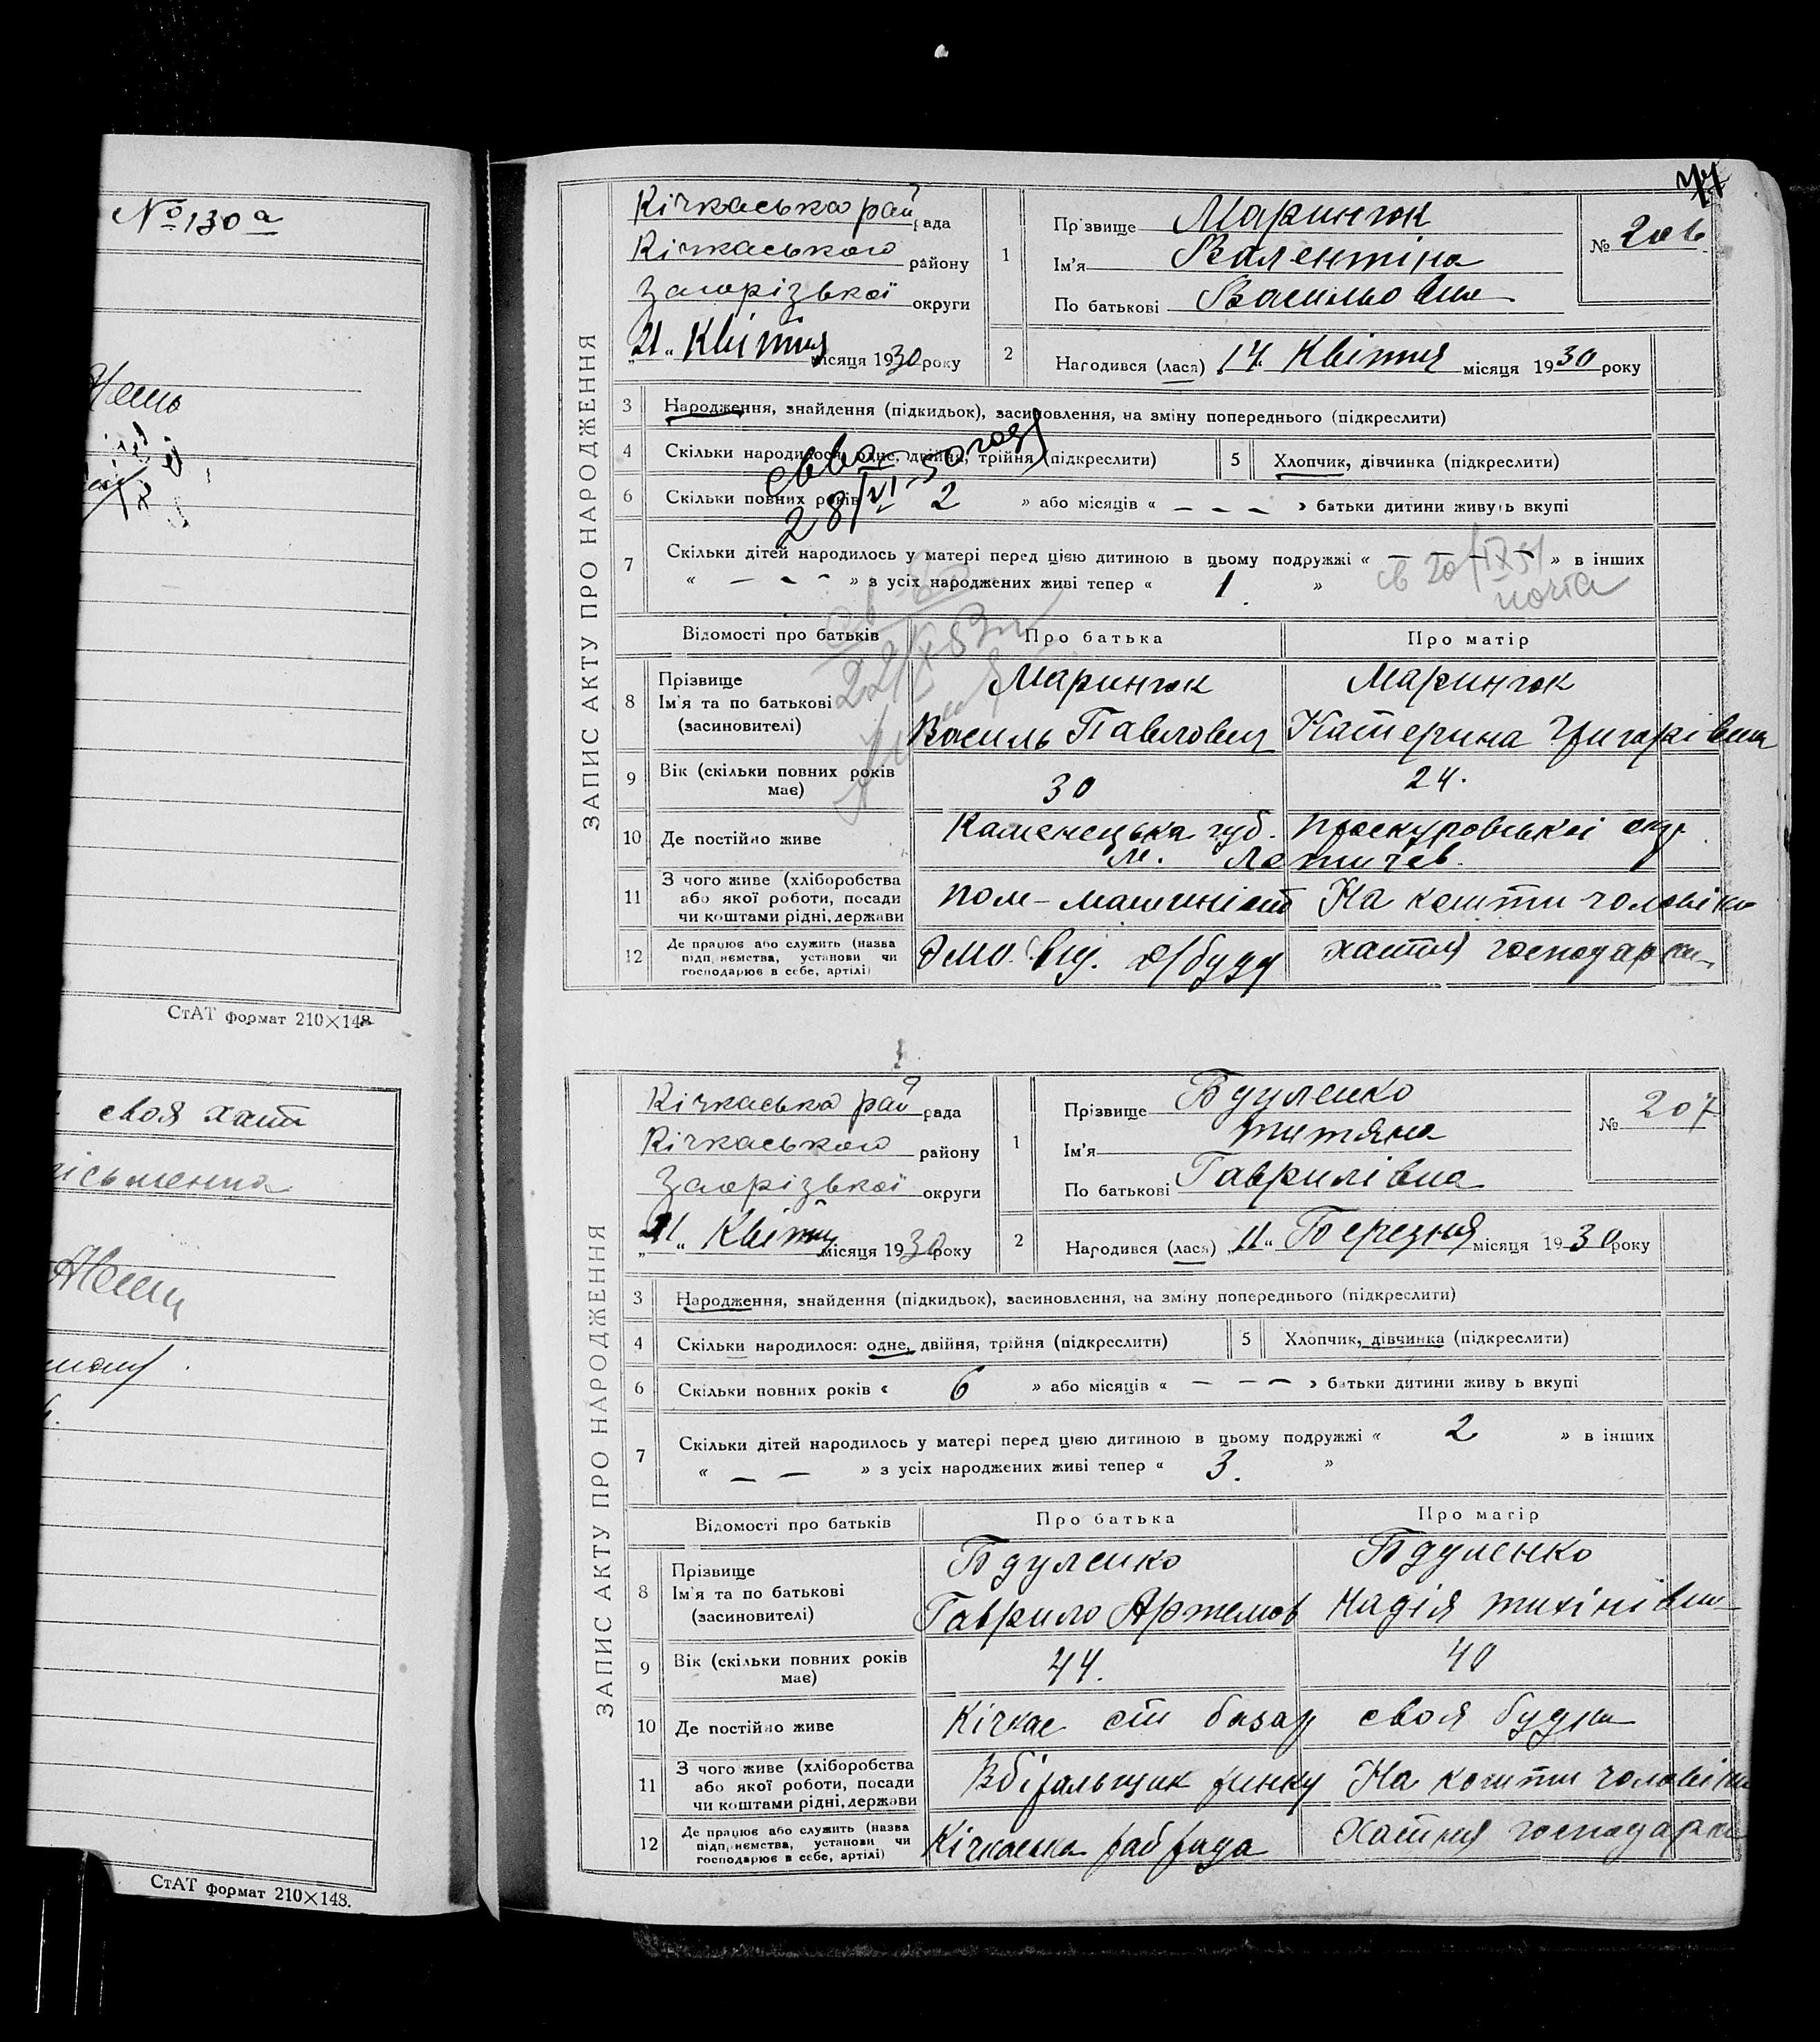 № 130а
СтАТ формат 210×148
своя хат
СтАТ формат 210×148.
77
ЗАПИС АКТУ ПРО НАРОДЖЕННЯ
Кічкаська рай рада
Кічкаського району
Запорізької округи
"21" Квітня місяця 1930 року
1
Прізвище Маринюк
Ім'я Валентіна
По батькові Васильовна
№ 206
2
Народився (лася) "14" Квітня місяця 1930 року
3 Народження, знайдення (підкидьок), засиновлення, на зміну попереднього (підкреслити)
4 Скільки народилося: одне, двійня, трійня (підкреслити)
5 Хлопчик, дівчинка (підкреслити)
6 Скільки повних років 2 » або місяців « – – – » батьки дитини живуть вкупі
28/VI-50
7 Скільки дітей народилось у матері перед цією дитиною в цьому подружжі « – – – » в інших
« – – – » з усіх народжених живі тепер « 1. »
св 20/IX 51
почта
Відомості про батьків Про батька Про матір
8 Прізвище Ім'я та по батькові (засновителі)
Маринюк Маринюк
Василь Павлович Катерина Григорівна
9 Вік (скільки повних років має) 30 24.
10 Де постійно живе Каменецька губ. Проскуровської окр.
м. Летичев.
11 З чого живе (хліборобства або якої роботи, посади чи коштами рідні, держави
пом-машиніст На кошти чоловіка
12 Де працює або служить (назва підприємства, установи чи господарює в себе, артілі)
хатня господарка
ЗАПИС АКТУ ПРО НАРОДЖЕННЯ
Кічкаська рай рада
Кічкаського району
Запорізької округи
"21" Квітн місяця 1930 року
1
Прізвище Бдуленко
Ім'я Титяна
По батькові Гаврилівна
№ 207
2
Народився (лася) "11" Березня місяця 1930 року
3 Народження, знайдення (підкидьок), засиновлення, на зміну попереднього (підкреслити)
4 Скільки народилося: одне, двійня, трійня (підкреслити)
5 Хлопчик, дівчинка (підкреслити)
6 Скільки повних років « 6 » або місяців « – – – » батьки дитини живу ь вкупі
7 Скільки дітей народилось у матері перед цією дитиною в цьому подружжі « 2 » в інших
« – – » з усіх народжених живі тепер « 3. »
Відомості про батьків Про батька Про матір
8 Прізвище Ім'я та по батькові (засиновителі)
Бдуленко Бдуленко
Гаврило Артемов Надія Тихінівна
9 Вік (скільки повних років має) 44. 40
10 Де постійно живе Кічкас ст базар своя будка
11 З чого живе (хліборобства або якої роботи, посади чи коштами рідні, держави
Вбіральщик ринку На кошти чоловіка
12 Де працює або служить (назва підприємства, установи чи господарює в себе, артілі)
Кічкаська раб рада Хатня господарка